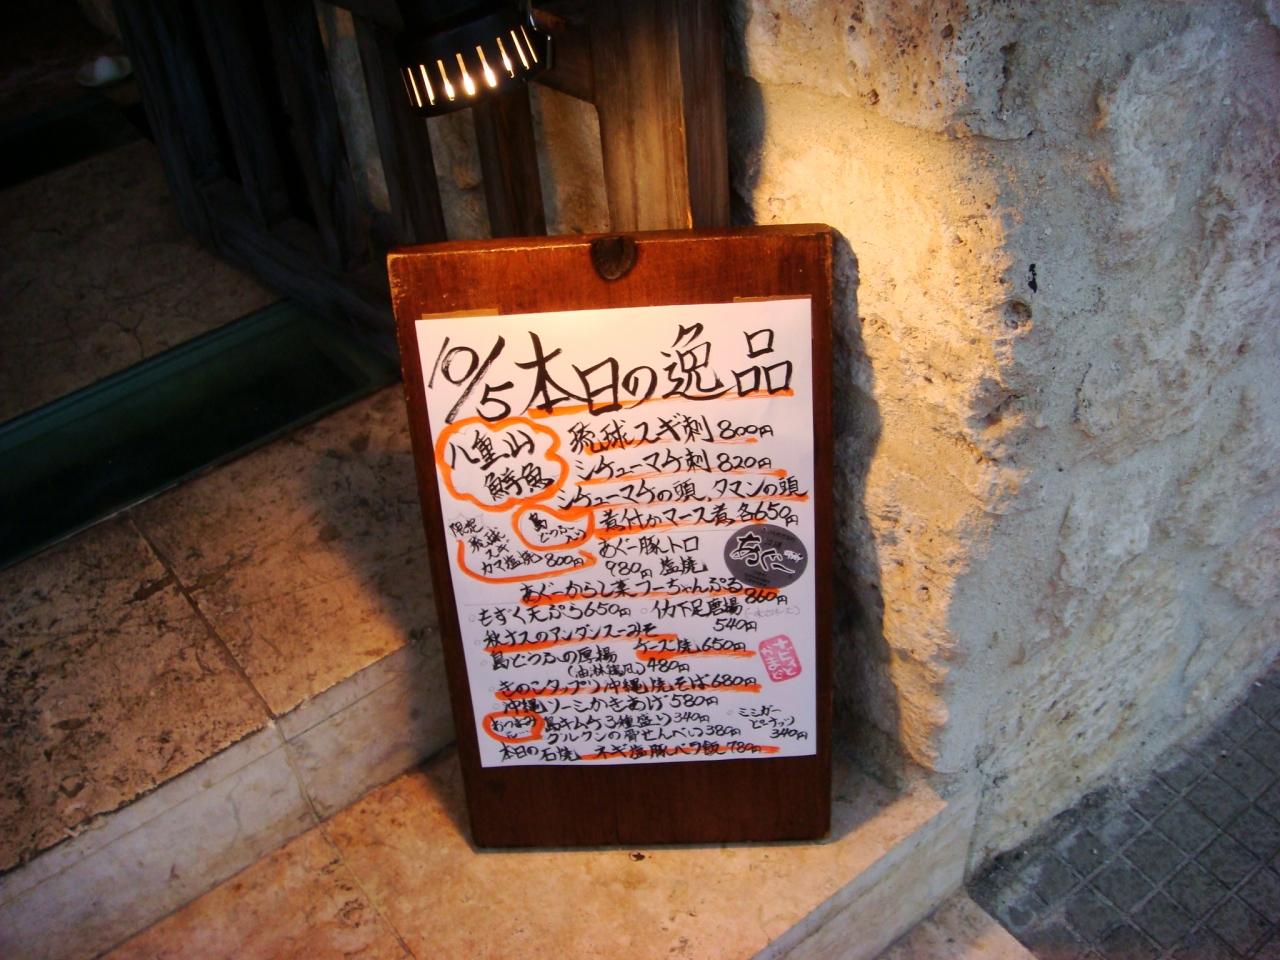 10/5 本日の逸品
八重山
鮮魚
琉球スギ刺 800円
シチューマチ刺 820円
シチューマチの頭、タマンの頭
煮付かマース煮 各650円
限定
琉球
スギ
カマ塩焼 800円
島
どうふ入り
あぐー豚トロ
980円 塩焼
あぐーからし菜フーちゃんぷる
860円
もずく天ぷら650円
竹下足唐揚
540円
秋ナスのアンダンスーみそ
チーズ焼 650円
島どうふの厚揚
480円
きのこタップリ沖縄焼そば680円
沖縄ソーミンかきあげ580円
おつまみ
島キムチ3種盛り340円
ミミガー
ピーナッツ
340円
グルクンの骨せんべい380円
本日の石焼 ネギ塩豚トロ飯 780円